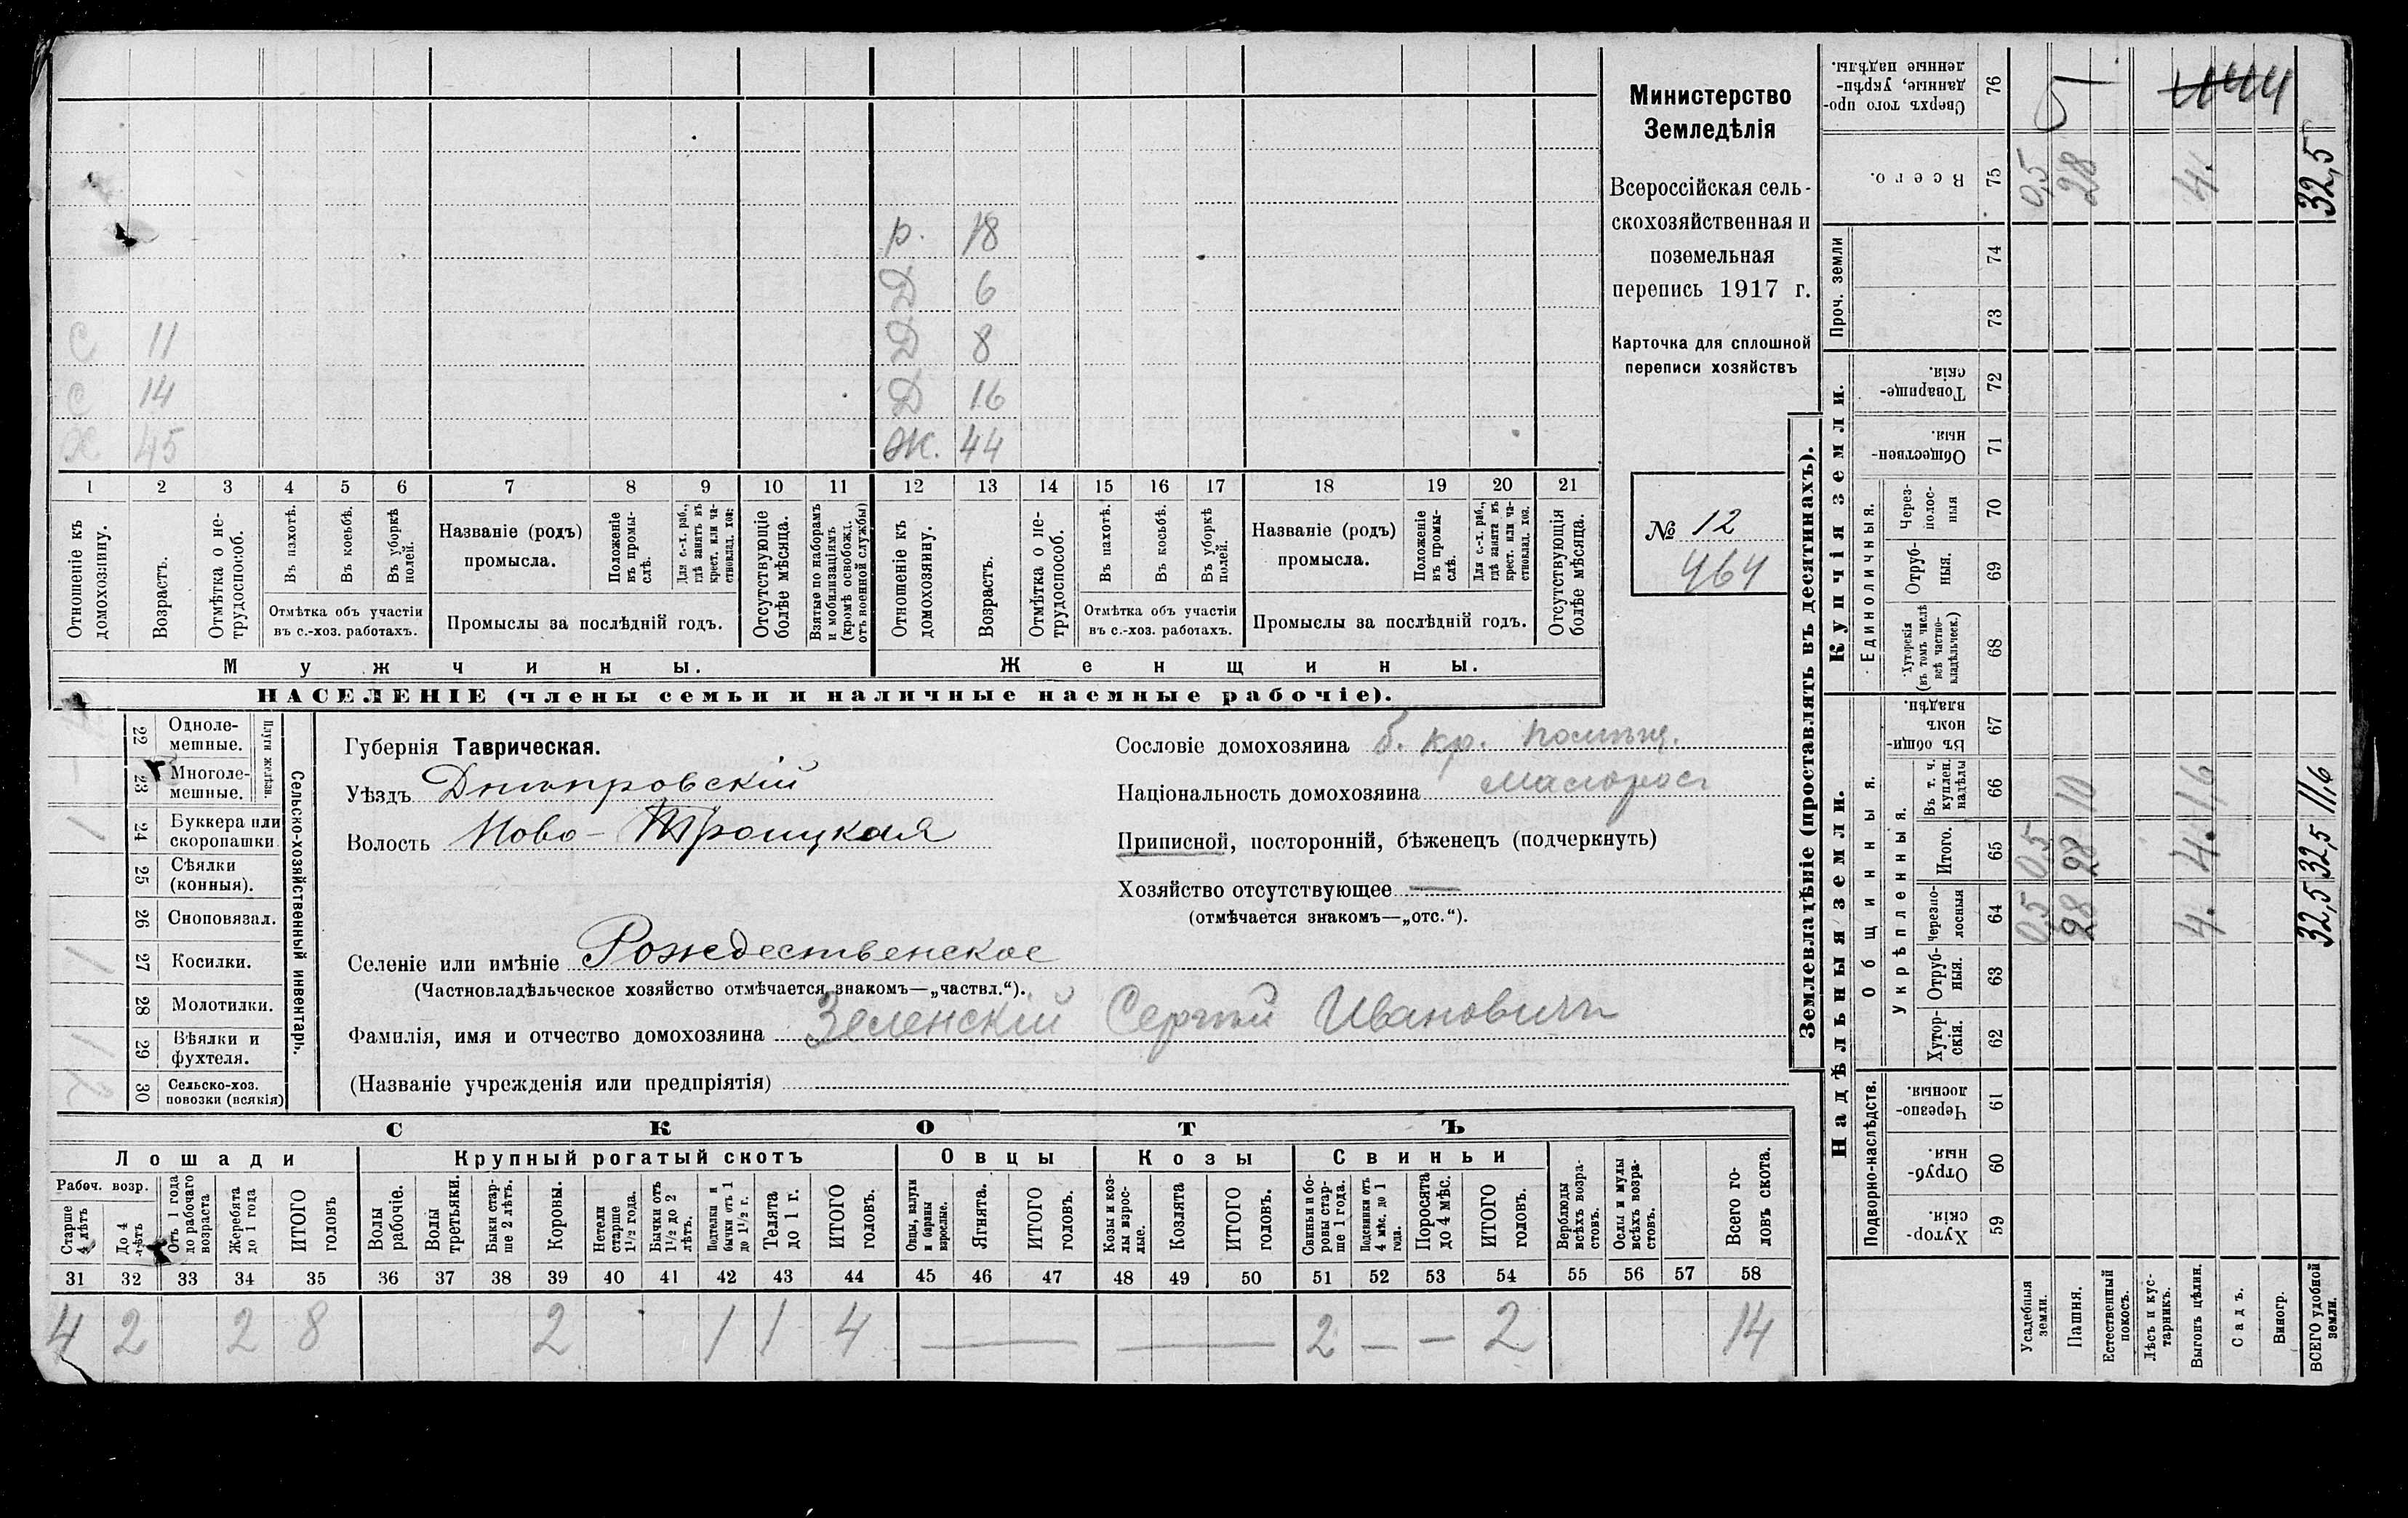 Министерство
Земледѣлія
Всероссійская сель-
скохозяйственная и
поземельная
перепись 1917 г.
Карточка для сплошной
переписи хозяйствъ
№ 12
464
р. 18
Д 6
С 11 Д 8
С 14 Д 16
Х 45 Ж. 44
1 2 3 4 5 6 7 8 9 10 11 12 13 14 15 16 17 18 19 20 21
Отношеніе къ домохозяину.
Возрастъ.
Отмѣтка о не-
трудоспособ.
Въ пахотѣ.
Въ косьбѣ.
Въ уборкѣ
полей.
Отмѣтка объ участіи
въ с.-хоз. работахъ.
Названіе (родъ)
промысла.
Положеніе
въ промы-
слѣ.
Для с.-х. раб.,
гдѣ занятъ въ
крест. или ча-
стновлад. хоз.
Промыслы за послѣдній годъ.
Отсутствующіе
болѣе мѣсяца.
Взятые по наборамъ
и мобилизаціямъ
(кромѣ освобожд.
отъ военной службы)
Отношеніе къ
домохозяину.
Возрастъ.
Отмѣтка о не-
трудоспособ.
Въ пахотѣ.
Въ косьбѣ.
Въ уборкѣ
полей.
Отмѣтка объ участіи
въ с.-хоз. работахъ.
Названіе (родъ)
промысла.
Положеніе
въ промы-
слѣ.
Для с.-х. раб.,
гдѣ занята въ
крест. или ча-
стновлад. хоз.
Промыслы за послѣдній годъ.
Отсутствующія
болѣе мѣсяца.
Мужчины.
Женщины.
НАСЕЛЕНІЕ (члены семьи и наличные наемные рабочіе).
Сельско-хозяйственный инвентарь.
Плуги желѣзн.
22 Одноле-
мешные.
23 Многоле-
мешные.
24 Буккера или
скоропашки
1
25 Сѣялки
(конныя).
26 Сноповязал.
27 Косилки.
1
28 Молотилки.
29 Вѣялки и
фухтеля.
1
30 Сельско-хоз.
повозки (всякія)
2
Губернія Таврическая.
Уѣздъ Днѣпровскій
Волость Ново-Троицкая
Сословіе домохозяина б. кр. помѣщ.
Національность домохозяина Малорос
Приписной, посторонній, бѣженецъ (подчеркнуть)
Хозяйство отсутствующее —
(отмѣчается знакомъ—„отс.“).
Селеніе или имѣніе Рождественское
(Частновладѣльческое хозяйство отмѣчается знакомъ—„частвл.“).
Фамилія, имя и отчество домохозяина Зеленскій Сергѣй Ивановичъ
(Названіе учрежденія или предпріятія)
СКОТЪ
Лошади
Крупный рогатый скотъ
Овцы
Козы
Свиньи
Рабоч. возр.
Старше
4 лѣтъ
До 4
лѣтъ
Отъ 1 года
до рабочаго
возраста
Жеребята
до 1 года
ИТОГО
головъ
Волы
рабочіе.
Волы
третьяки.
Быки стар-
ше 2 лѣтъ.
Коровы.
Нетели
старше
1½ года.
Бычки отъ
1½ до 2
лѣтъ.
Подтелки и
бычки отъ 1
до 1½ г.
Телята
до 1 г.
ИТОГО
головъ.
Овцы, валухи
и бараны
взрослые.
Ягнята.
ИТОГО
головъ.
Козы и коз-
лы взрос-
лые.
Козлята
ИТОГО
головъ.
Свиньи и бо-
ровы стар-
ше 1 года.
Подсвинки отъ
4 мѣс. до 1
года.
Поросята
до 4 мѣс.
ИТОГО
головъ.
Верблюды
всѣхъ возра-
стовъ.
Ослы и мулы
всѣхъ возра-
стовъ.
Всего го-
ловъ скота.
31 32 33 34 35 36 37 38 39 40 41 42 43 44 45 46 47 48 49 50 51 52 53 54 55 56 57 58
4 2 2 8 2 1 1 4 — — 2 — — 2 14
Землевладѣніе (проставлять въ десятинахъ).
Надѣльныя земли.
Купчія земли.
Проч. земли
Подворно-наслѣдств.
Общинныя.
Укрѣпленныя.
Единоличныя.
Хутор-
скія.
59
Отруб-
ныя.
60
Черезпо-
лосныя
61
Хутор-
скія.
62
Отруб-
ныя.
63
Черезпо-
лосныя
64
Итого.
65
Въ т. ч.
куплен.
надѣлы
66
Въ общин-
номъ
владѣн.
67
Хуторскія
(въ томъ числѣ
всѣ частно-
владѣльческ.)
68
Отруб-
ныя.
69
Через-
полос-
ныя
70
Обществен-
ныя.
71
Товарище-
скія.
72
73
74
Всего.
75
Сверхъ того про-
данные, укрѣп-
ленные надѣлы.
76
Усадебныя
земли.
0,5 0,5 0,5
Пашня.
28 28 10 28 5
Естественный
покосъ.
Лѣсъ и кус-
тарникъ.
Выгонъ цѣлин.
4. 4. 1,6 4.
Садъ.
Виногр.
ВСЕГО удобной
земли.
32,5 32,5 11,6 32,5